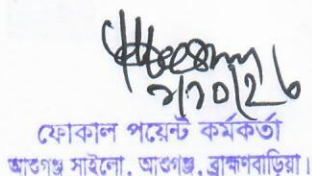 ২/১০/২৬
ফোকাল পয়েন্ট কর্মকর্তা
আশুগঞ্জ সাইলো, আশুগঞ্জ, ব্রাহ্মণবাড়িয়া।